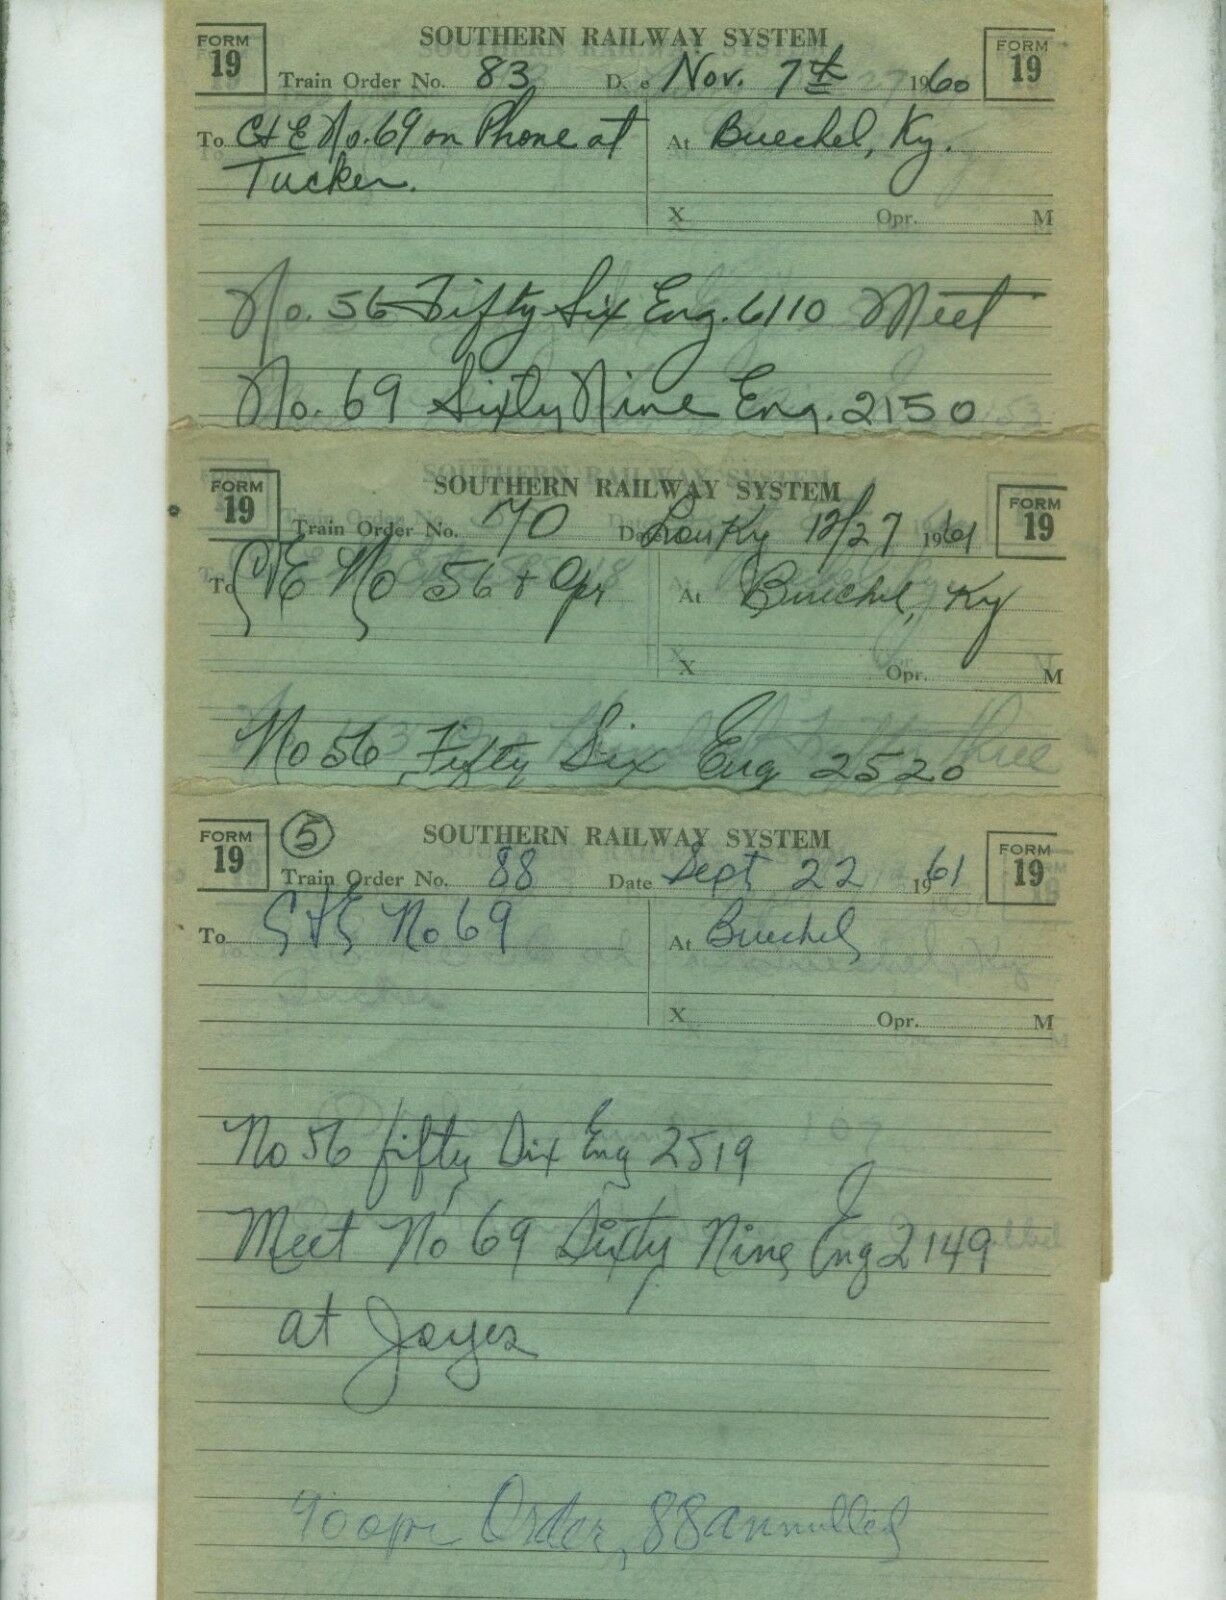 FORM 19 SOUTHERN RAILWAY SYSTEM FORM 19
Train Order No. 83 Date Nov. 7th 1960
To C & E No. 69 on Phone at At Buechel, Ky.
Tucker.
X Opr. M
No. 56 Fifty Six Eng. 6110 Meet
No. 69 Sixty Nine Eng. 2150
FORM 19 SOUTHERN RAILWAY SYSTEM FORM 19
Train Order No. 70 Date Lou Ky 12/27 1961
To C & E No 56 & Opr At Buechel, Ky
X Opr. M
No 56 Fifty Six Eng 2520
FORM 19 5 SOUTHERN RAILWAY SYSTEM FORM 19
Train Order No. 88 Date Sept 22 1961
To C & E No 69 At Buechel
X Opr. M
No 56 fifty Six Eng 2519
Meet No 69 Sixty Nine Eng 2149
at Joyes
Order 88 annulled